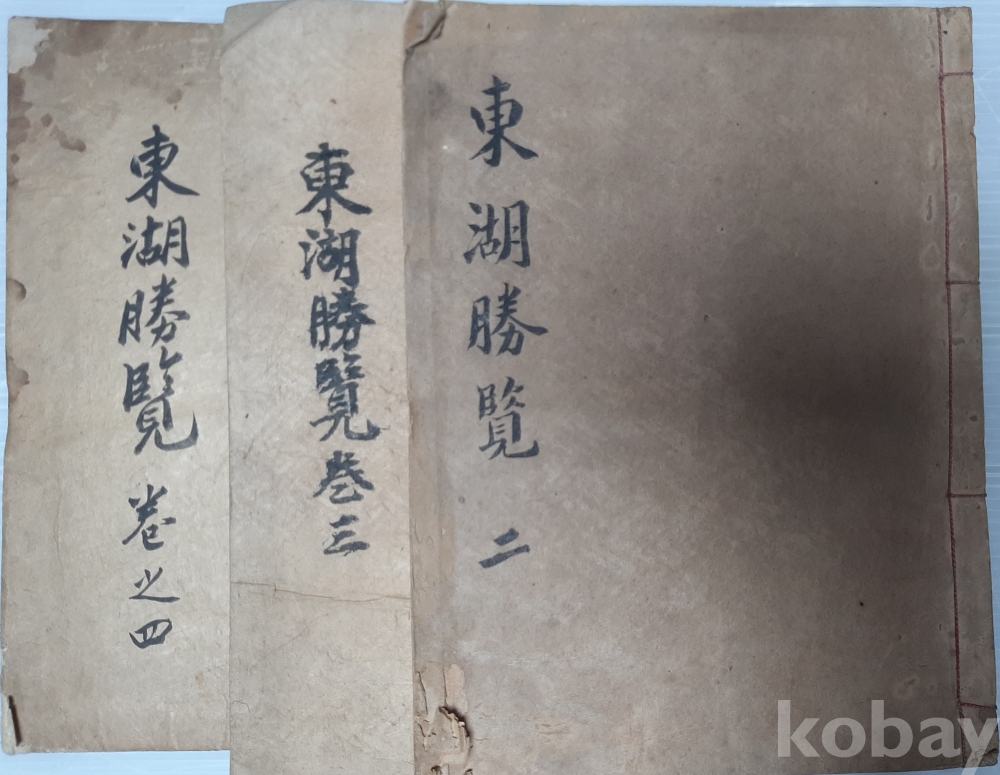 東湖勝覽 二
東湖勝覽 卷三
東湖勝覽 卷之四
kobay